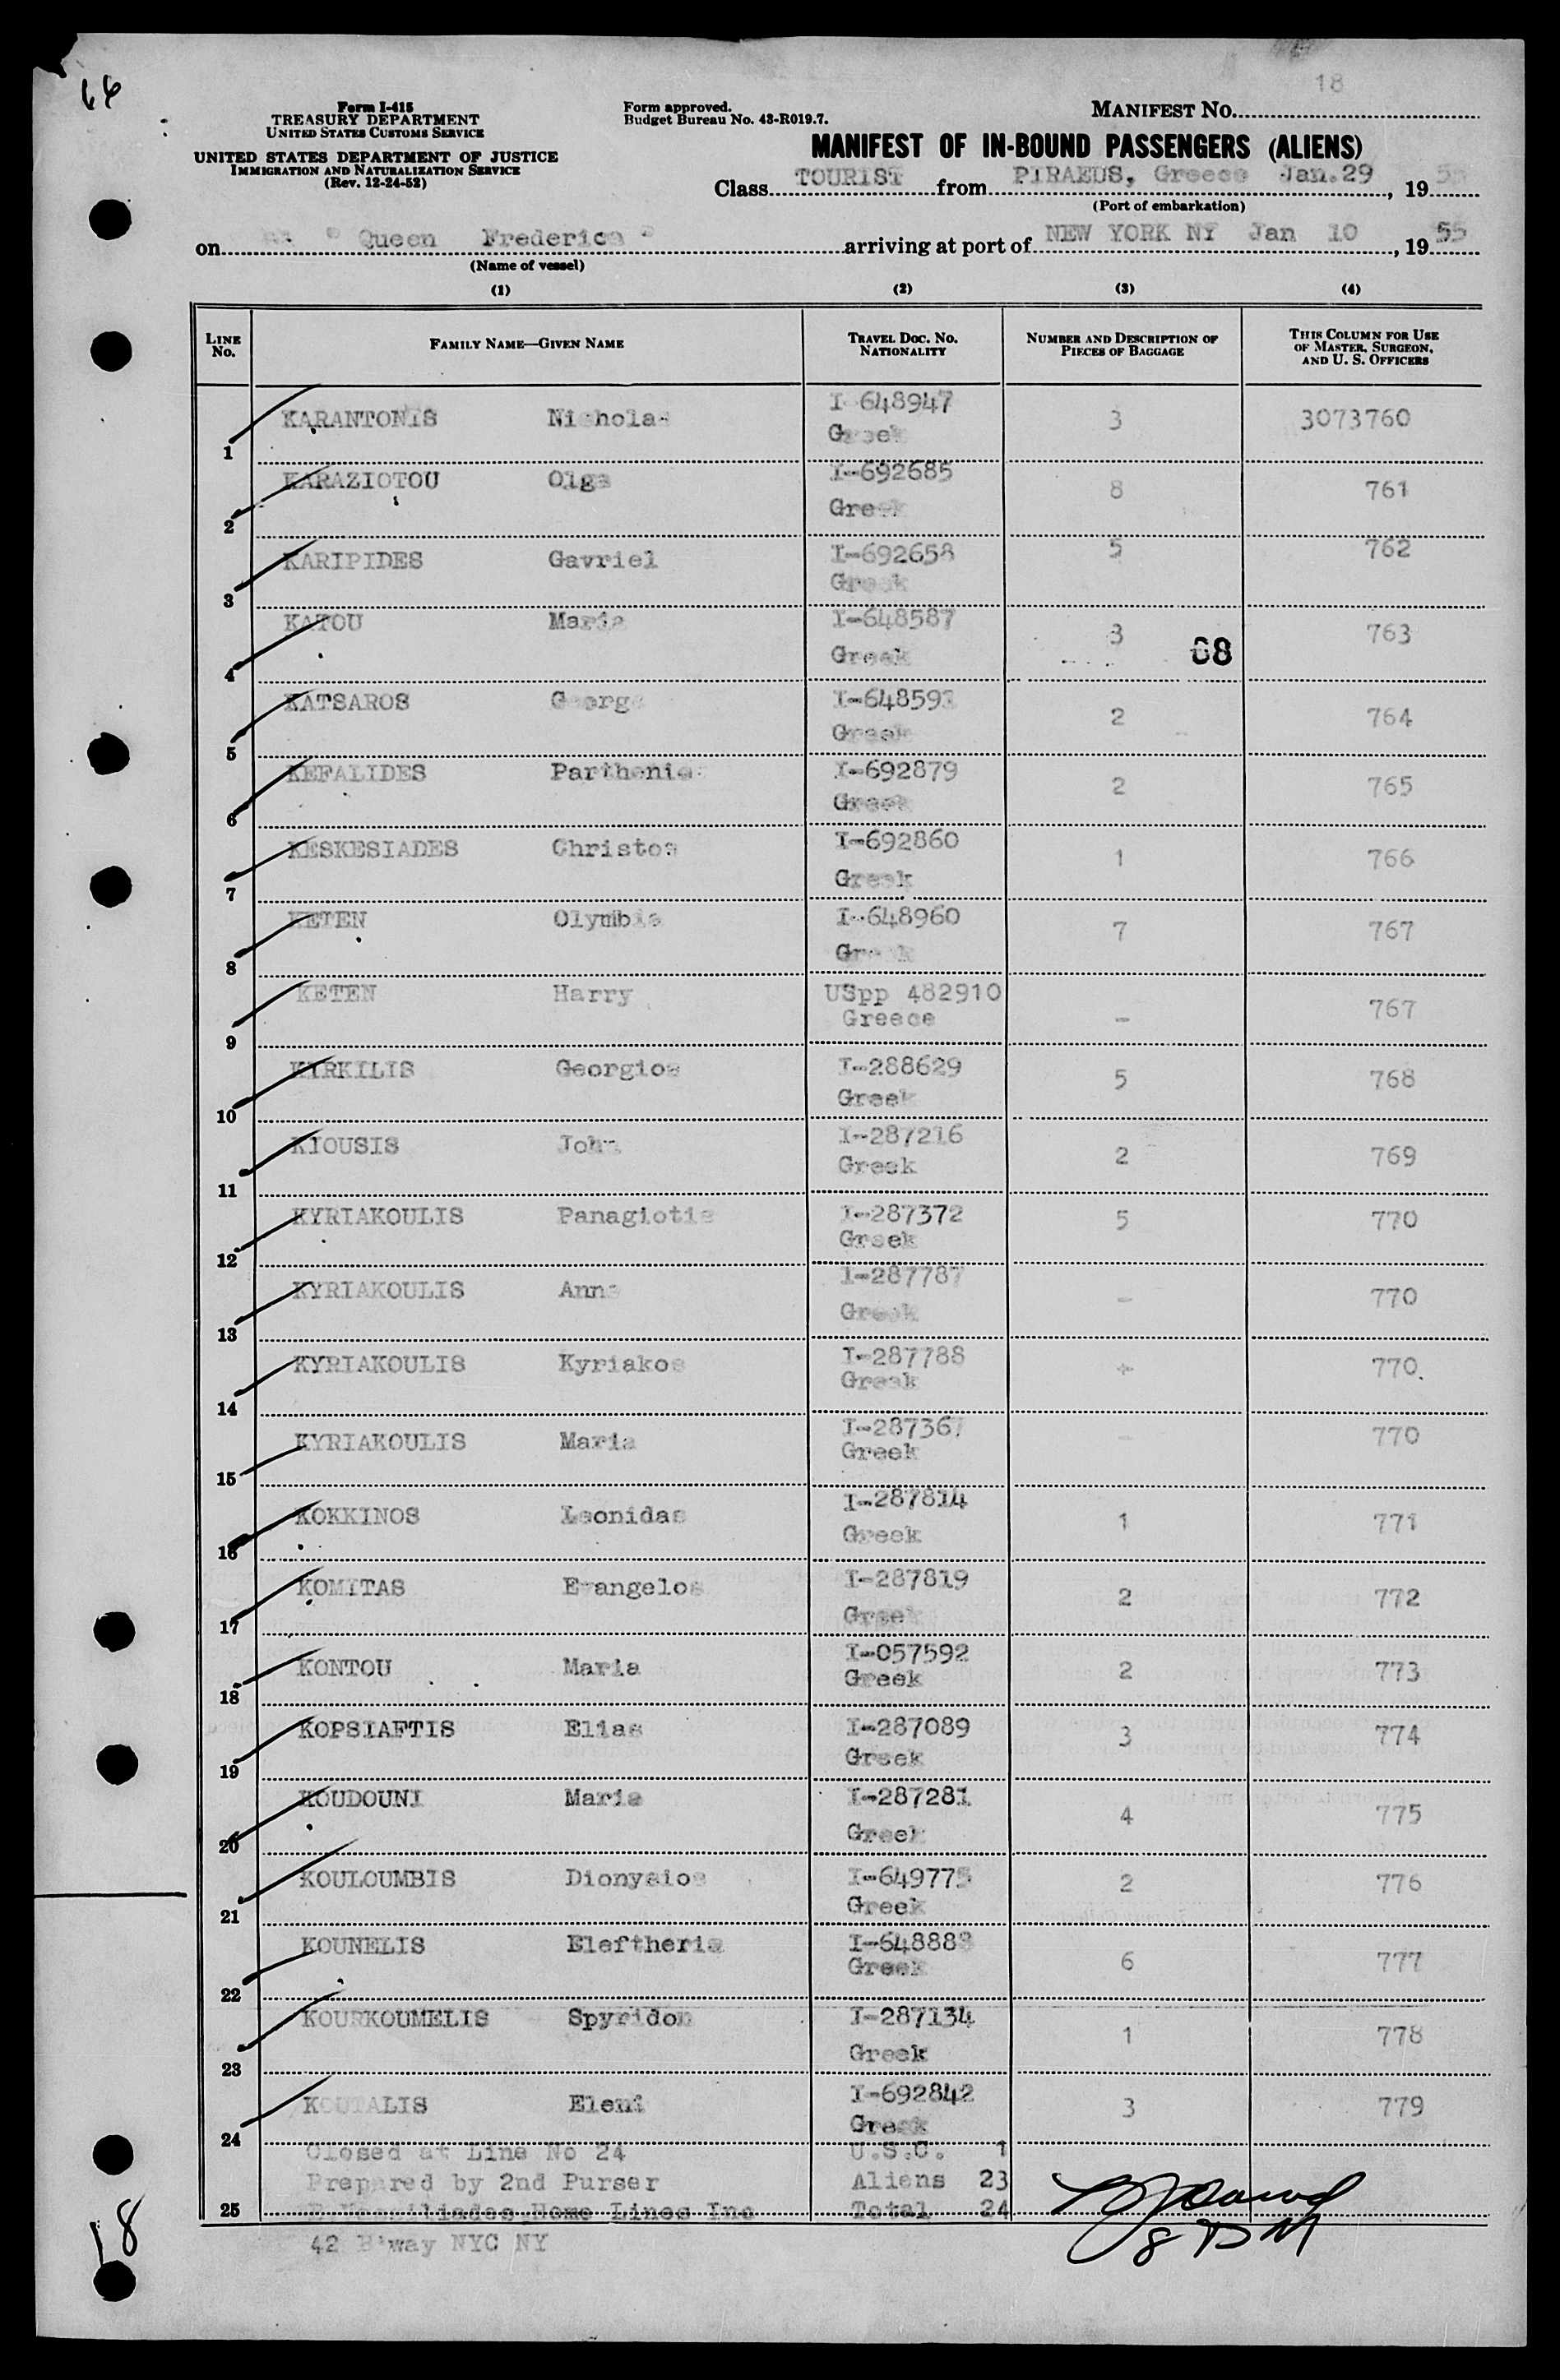 66
18
Form I-415
TREASURY DEPARTMENT
UNITED STATES CUSTOMS SERVICE
UNITED STATES DEPARTMENT OF JUSTICE
IMMIGRATION AND NATURALIZATION SERVICE
(Rev. 12-24-52)
Form approved.
Budget Bureau No. 43-R019.7.
MANIFEST NO.
MANIFEST OF IN-BOUND PASSENGERS (ALIENS)
Class TOURIST from PIRAEUS, Greece Jan.29, 19
(Port of embarkation)
on " Queen Frederica " arriving at port of NEW YORK NY Jan 10, 19 55
(Name of vessel)
(1) (2) (3) (4)
LINE No. FAMILY NAME—GIVEN NAME TRAVEL DOC. NO. NATIONALITY NUMBER AND DESCRIPTION OF PIECES OF BAGGAGE THIS COLUMN FOR USE OF MASTER, SURGEON, AND U. S. OFFICERS
1 KARANTONIS Nicholas I 648947 Greek 3 3073760
2 KARAZIOTOU Olga I-692685 Greek 8 761
3 KARIPIDES Gavriel I-692658 Greek 5 762
4 KATOU Maria I-648587 Greek 3 68 763
5 KATSAROS George I-648593 Greek 2 764
6 KEFALIDES Parthenia I-692879 Greek 2 765
7 KESKESIADES Christos I-692860 Greek 1 766
8 KETEN Olymbia I-648960 Greek 7 767
9 KETEN Harry USpp 482910 Greece - 767
10 KYRKILIS Georgios I-288629 Greek 5 768
11 KIOUSIS John I-287216 Greek 2 769
12 KYRIAKOULIS Panagiotis I-287372 Greek 5 770
13 KYRIAKOULIS Anna I-287787 Greek - 770
14 KYRIAKOULIS Kyriakos I-287788 Greek - 770.
15 KYRIAKOULIS Maria I-287367 Greek - 770
16 KOKKINOS Leonidas I-287814 Greek 1 771
17 KOMITAS Evangelos I-287819 Greek 2 772
18 KONTOU Maria I-057592 Greek 2 773
19 KOPSIAFTIS Elias I-287089 Greek 3 774
20 KOUDOUNI Maria I-287281 Greek 4 775
21 KOULOUMBIS Dionysios I-649775 Greek 2 776
22 KOUNELIS Eleftheria I-648883 Greek 6 777
23 KOURKOUMELIS Spyridon I-287134 Greek 1 778
24 KOUTALIS Eleni I-692842 Greek 3 779
Closed at Line No 24 U.S.C. 1
Prepared by 2nd Purser Aliens 23
25 Home Lines Inc Total 24
42 B'way NYC NY
18